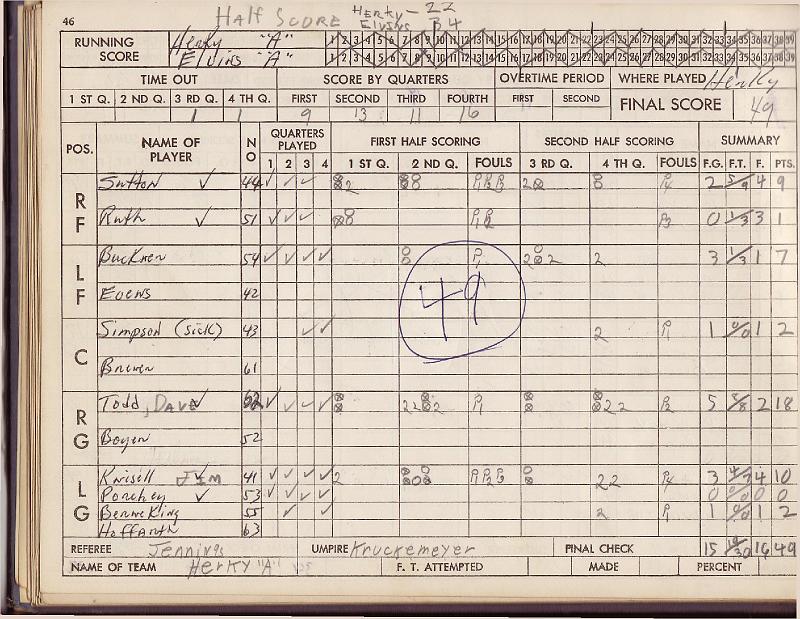 46 Half Score Herky - 22
Elvins 34
RUNNING SCORE Herky "A" 1 2 3 4 5 6 7 8 9 10 11 12 13 14 15 16 17 18 19 20 21 22 23 24 25 26 27 28 29 30 31 32 33 34 35 36 37 38 39
Elvins "A" 1 2 3 4 5 6 7 8 9 10 11 12 13 14 15 16 17 18 19 20 21 22 23 24 25 26 27 28 29 30 31 32 33 34 35 36 37 38 39
TIME OUT SCORE BY QUARTERS OVERTIME PERIOD WHERE PLAYED Herky
1 ST Q. 2 ND Q. 3 RD Q. 4 TH Q. FIRST SECOND THIRD FOURTH FIRST SECOND FINAL SCORE 49
1 1 9 13 11 16
POS. NAME OF PLAYER NO QUARTERS PLAYED FIRST HALF SCORING SECOND HALF SCORING SUMMARY
1 2 3 4 1 ST Q. 2 ND Q. FOULS 3 RD Q. 4 TH Q. FOULS F.G. F.T. F. PTS.
RF Sutton ✓ 44 ✓ ✓ ✓ 2 P1 P2 P3 2 P4 2 5/9 4 9
Ruth ✓ 51 ✓ ✓ ✓ P1 P2 P3 0 1/3 3 1
LF Buckner 54 ✓ ✓ ✓ ✓ P1 2 2 2 3 1/3 1 7
Evens 42
49
C Simpson (sick) 43 ✓ ✓ 2 P1 1 0/0 1 2
61
RG Todd, Dave ✓ 62 ✓ ✓ ✓ ✓ 2 2 2 P1 2 2 P2 5 8/8 2 18
Boyer 52
LG Knisell Jim ✓ 41 ✓ ✓ ✓ ✓ 2 P1 P2 P3 2 2 P4 3 4/7 4 10
Porchey ✓ 53 ✓ ✓ ✓ ✓ 0 0/0 0 0
55 ✓ ✓ 2 P1 1 0/0 1 2
63
REFEREE Jennings UMPIRE Kruckemeyer FINAL CHECK 15 19/30 16 49
NAME OF TEAM Herky "A" F. T. ATTEMPTED MADE PERCENT